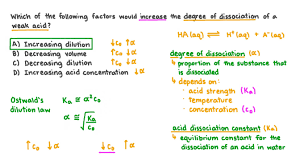 Which of the following factors would increase the degree of dissociation of a
weak acid?
HA(aq) ⇌ H⁺(aq) + A⁻(aq)
A) Increasing dilution ↓c₀ ↑α
B) Decreasing volume ↑c₀ ↓α
C) Decreasing dilution ↑c₀ ↓α
D) Increasing acid concentration ↓α
degree of dissociation (α)
↳ proportion of the substance that
is dissociated
↳ depends on:
· acid strength (Kₐ)
· temperature
· concentration (c₀)
Ostwald's
dilution law
Kₐ ≅ α²c₀
α ≅ √(Kₐ/c₀)
↑c₀ ↓α ↓c₀ ↑α
acid dissociation constant (Kₐ)
↳ equilibrium constant for the
dissociation of an acid in water